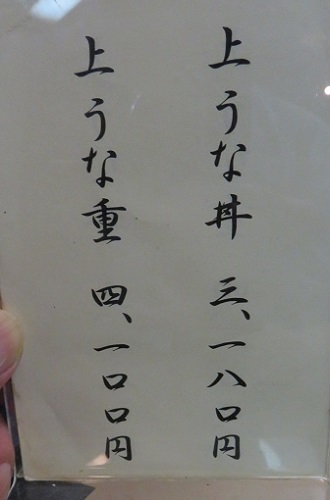 上うな丼 三、一八〇円
上うな重 四、一〇〇円